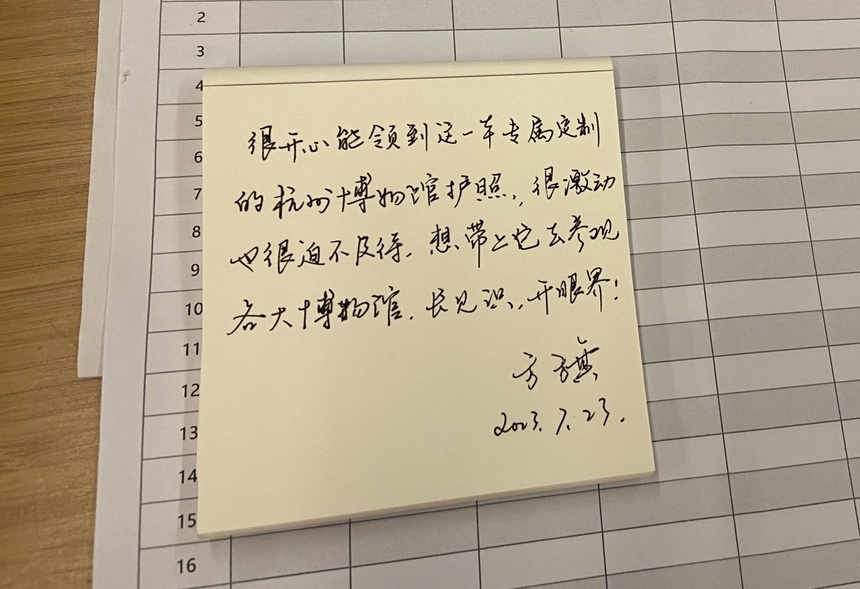 2
3
4
5
6
7
8
9
10
11
12
13
14
15
16
很开心能领到这一本专属定制
的杭州博物馆护照,很激动
也很迫不及待,想带上它去参观
各大博物馆,长见识,开眼界!
方
2023.7.23.